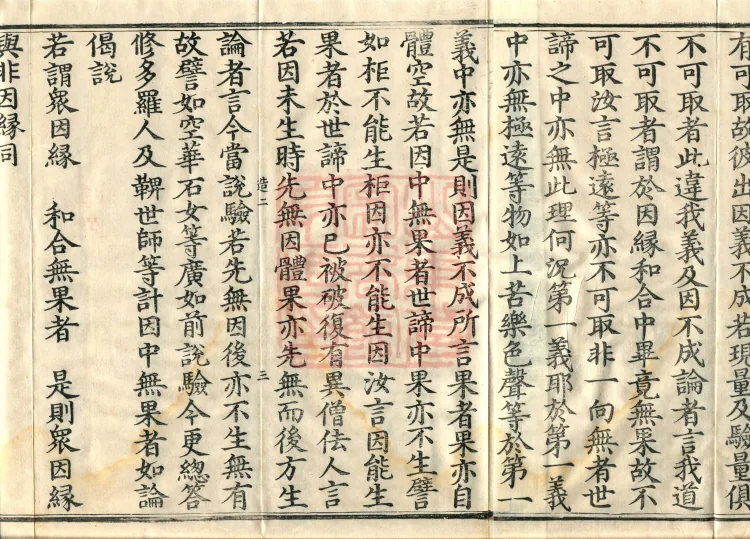 有可取故彼出因義不成若現量及驗量俱
不可取者此違我義及因不成論者言我道
不可取者謂於因縁和合中畢竟無果故不
可取汝言極遠等亦不可取非一向無者世
諦之中亦無此理何況第一義耶於第一義
中亦無極遠等物如上苦樂色聲等於第一
義中亦無是則因義不成所言果者果亦自
體空故若因中無果者世諦中果亦不生譬
如柜不能生柜因亦不能生因汝言因能生
果者於世諦中亦已被破復有異僧佉人言
若因未生時先無因體果亦先無而後方生
造二 三
論者言今當說驗若先無因後亦不生無有
故譬如空華石女等廣如前說驗今更總答
修多羅人及鞞世師等計因中無果者如論
偈説
若謂衆因縁 和合無果者 是則衆因縁
與非因縁同